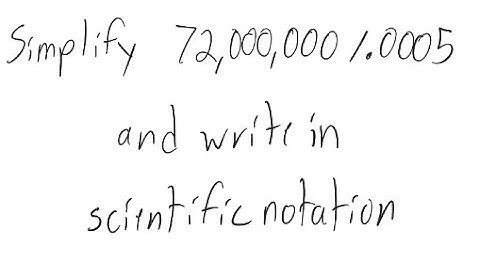 Simplify 72,000,000 /.0005
and write in
scientific notation